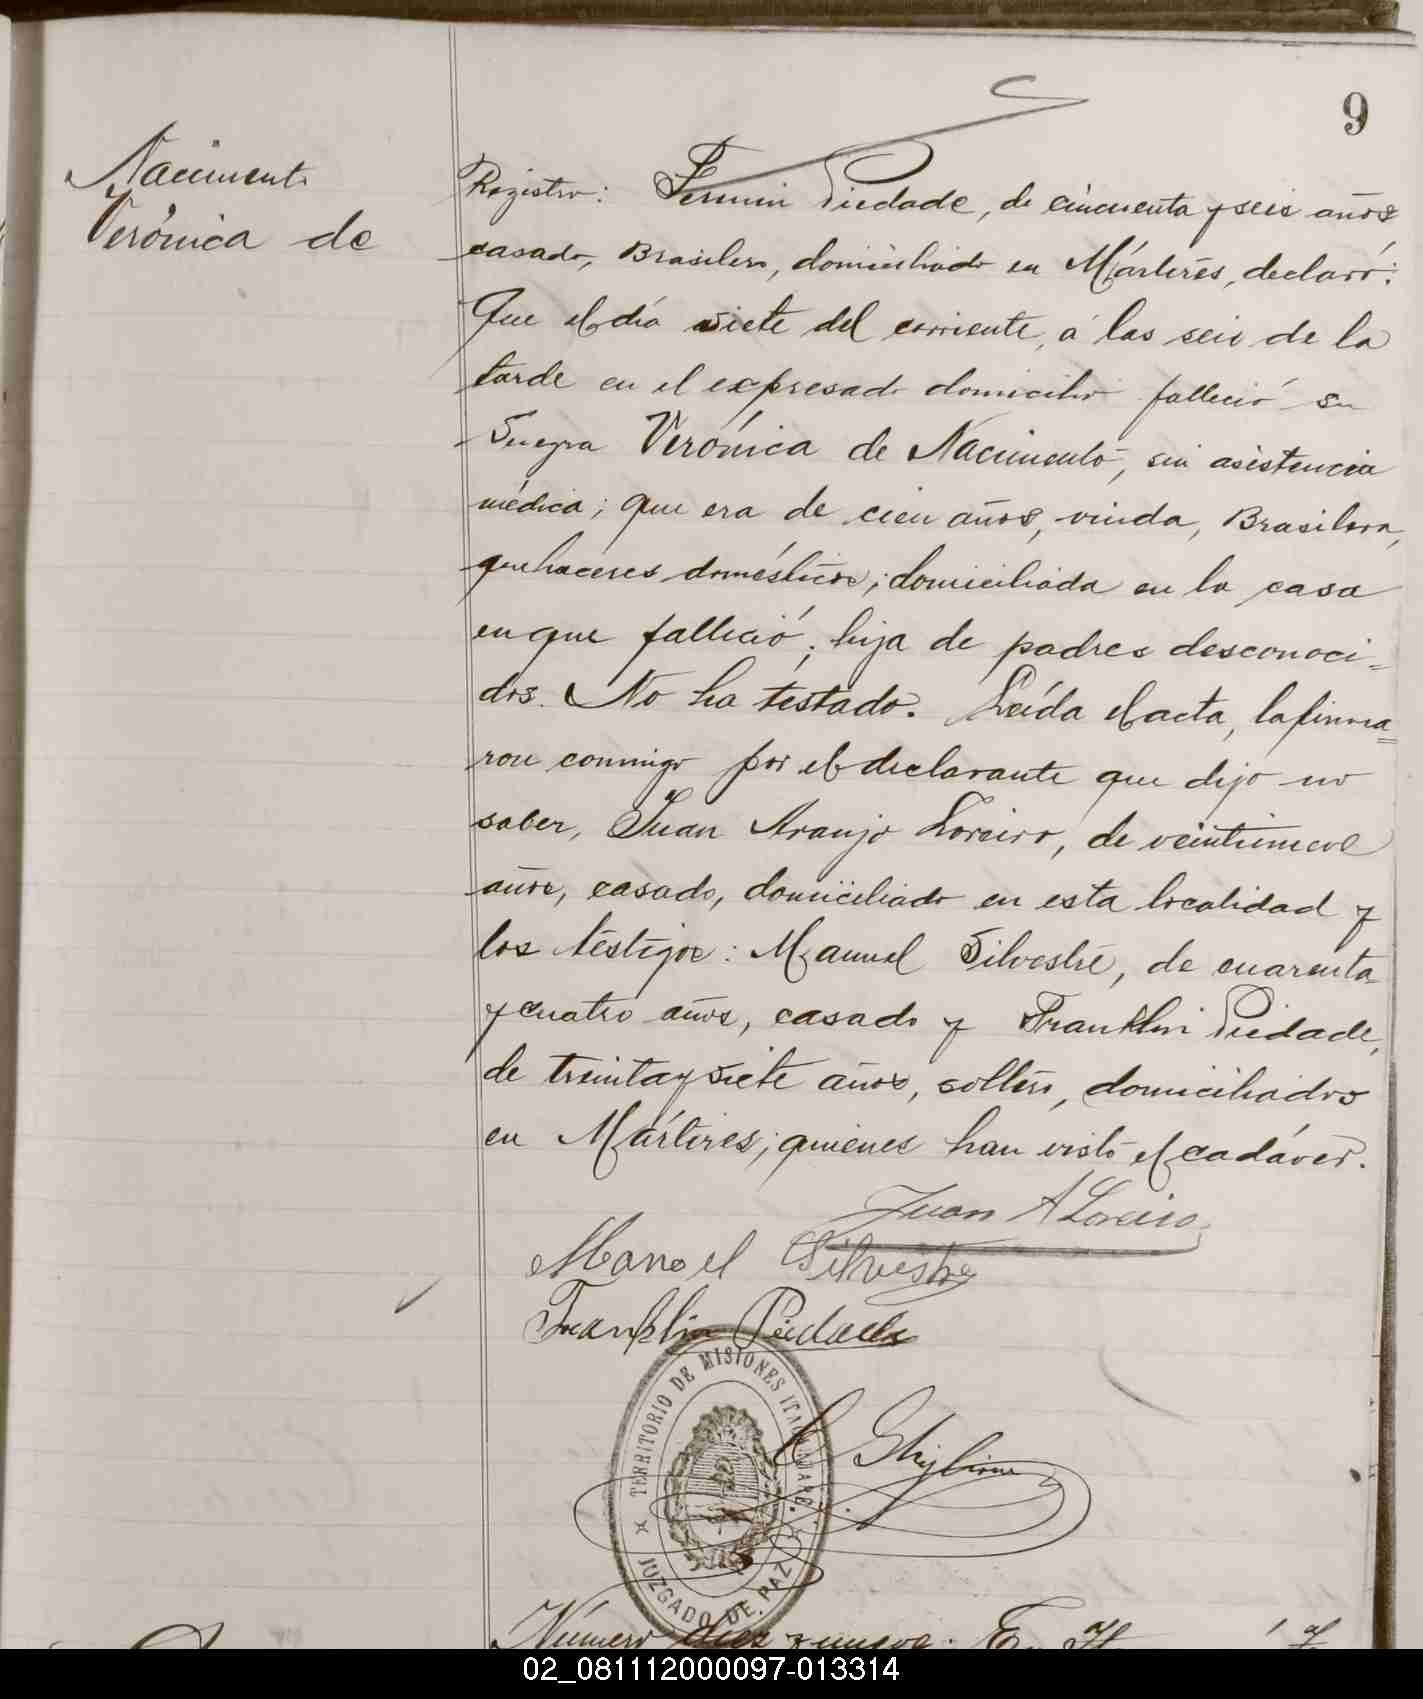 9
Nacimento
Verónica de
Registro: Fermin Piedade, de cincuenta y seis años
casado, Brasilero, domiciliado en Mártires, declaró:
Que el día siete del corriente, á las seis de la
tarde en el expresado domicilio falleció su
Suegra Verónica de Nacimento, sin asistencia
médica; que era de cien años, viuda, Brasilera,
quehaceres domésticos; domiciliada en la casa
en que falleció; hija de padres desconoci=
dos. No ha testado. Leída el acta, la firma=
ron conmigo por el declarante que dijo no
saber, Juan Araujo Loreiro, de veintinueve
años, casado, domiciliado en esta localidad y
los testigos: Manuel Silvestre, de cuarenta
y cuatro años, casado y Franklin Piedade,
de treinta y siete años, soltero, domiciliados
en Mártires; quienes han visto el cadáver.
Juan A Loreiro
Manoel Silvestre
Franklin Piedade
Ghiglione
TERRITORIO DE MISIONES ITACARUARÉ.
JUZGADO DE PAZ
Número diez y nueve. En
02_081112000097-013314